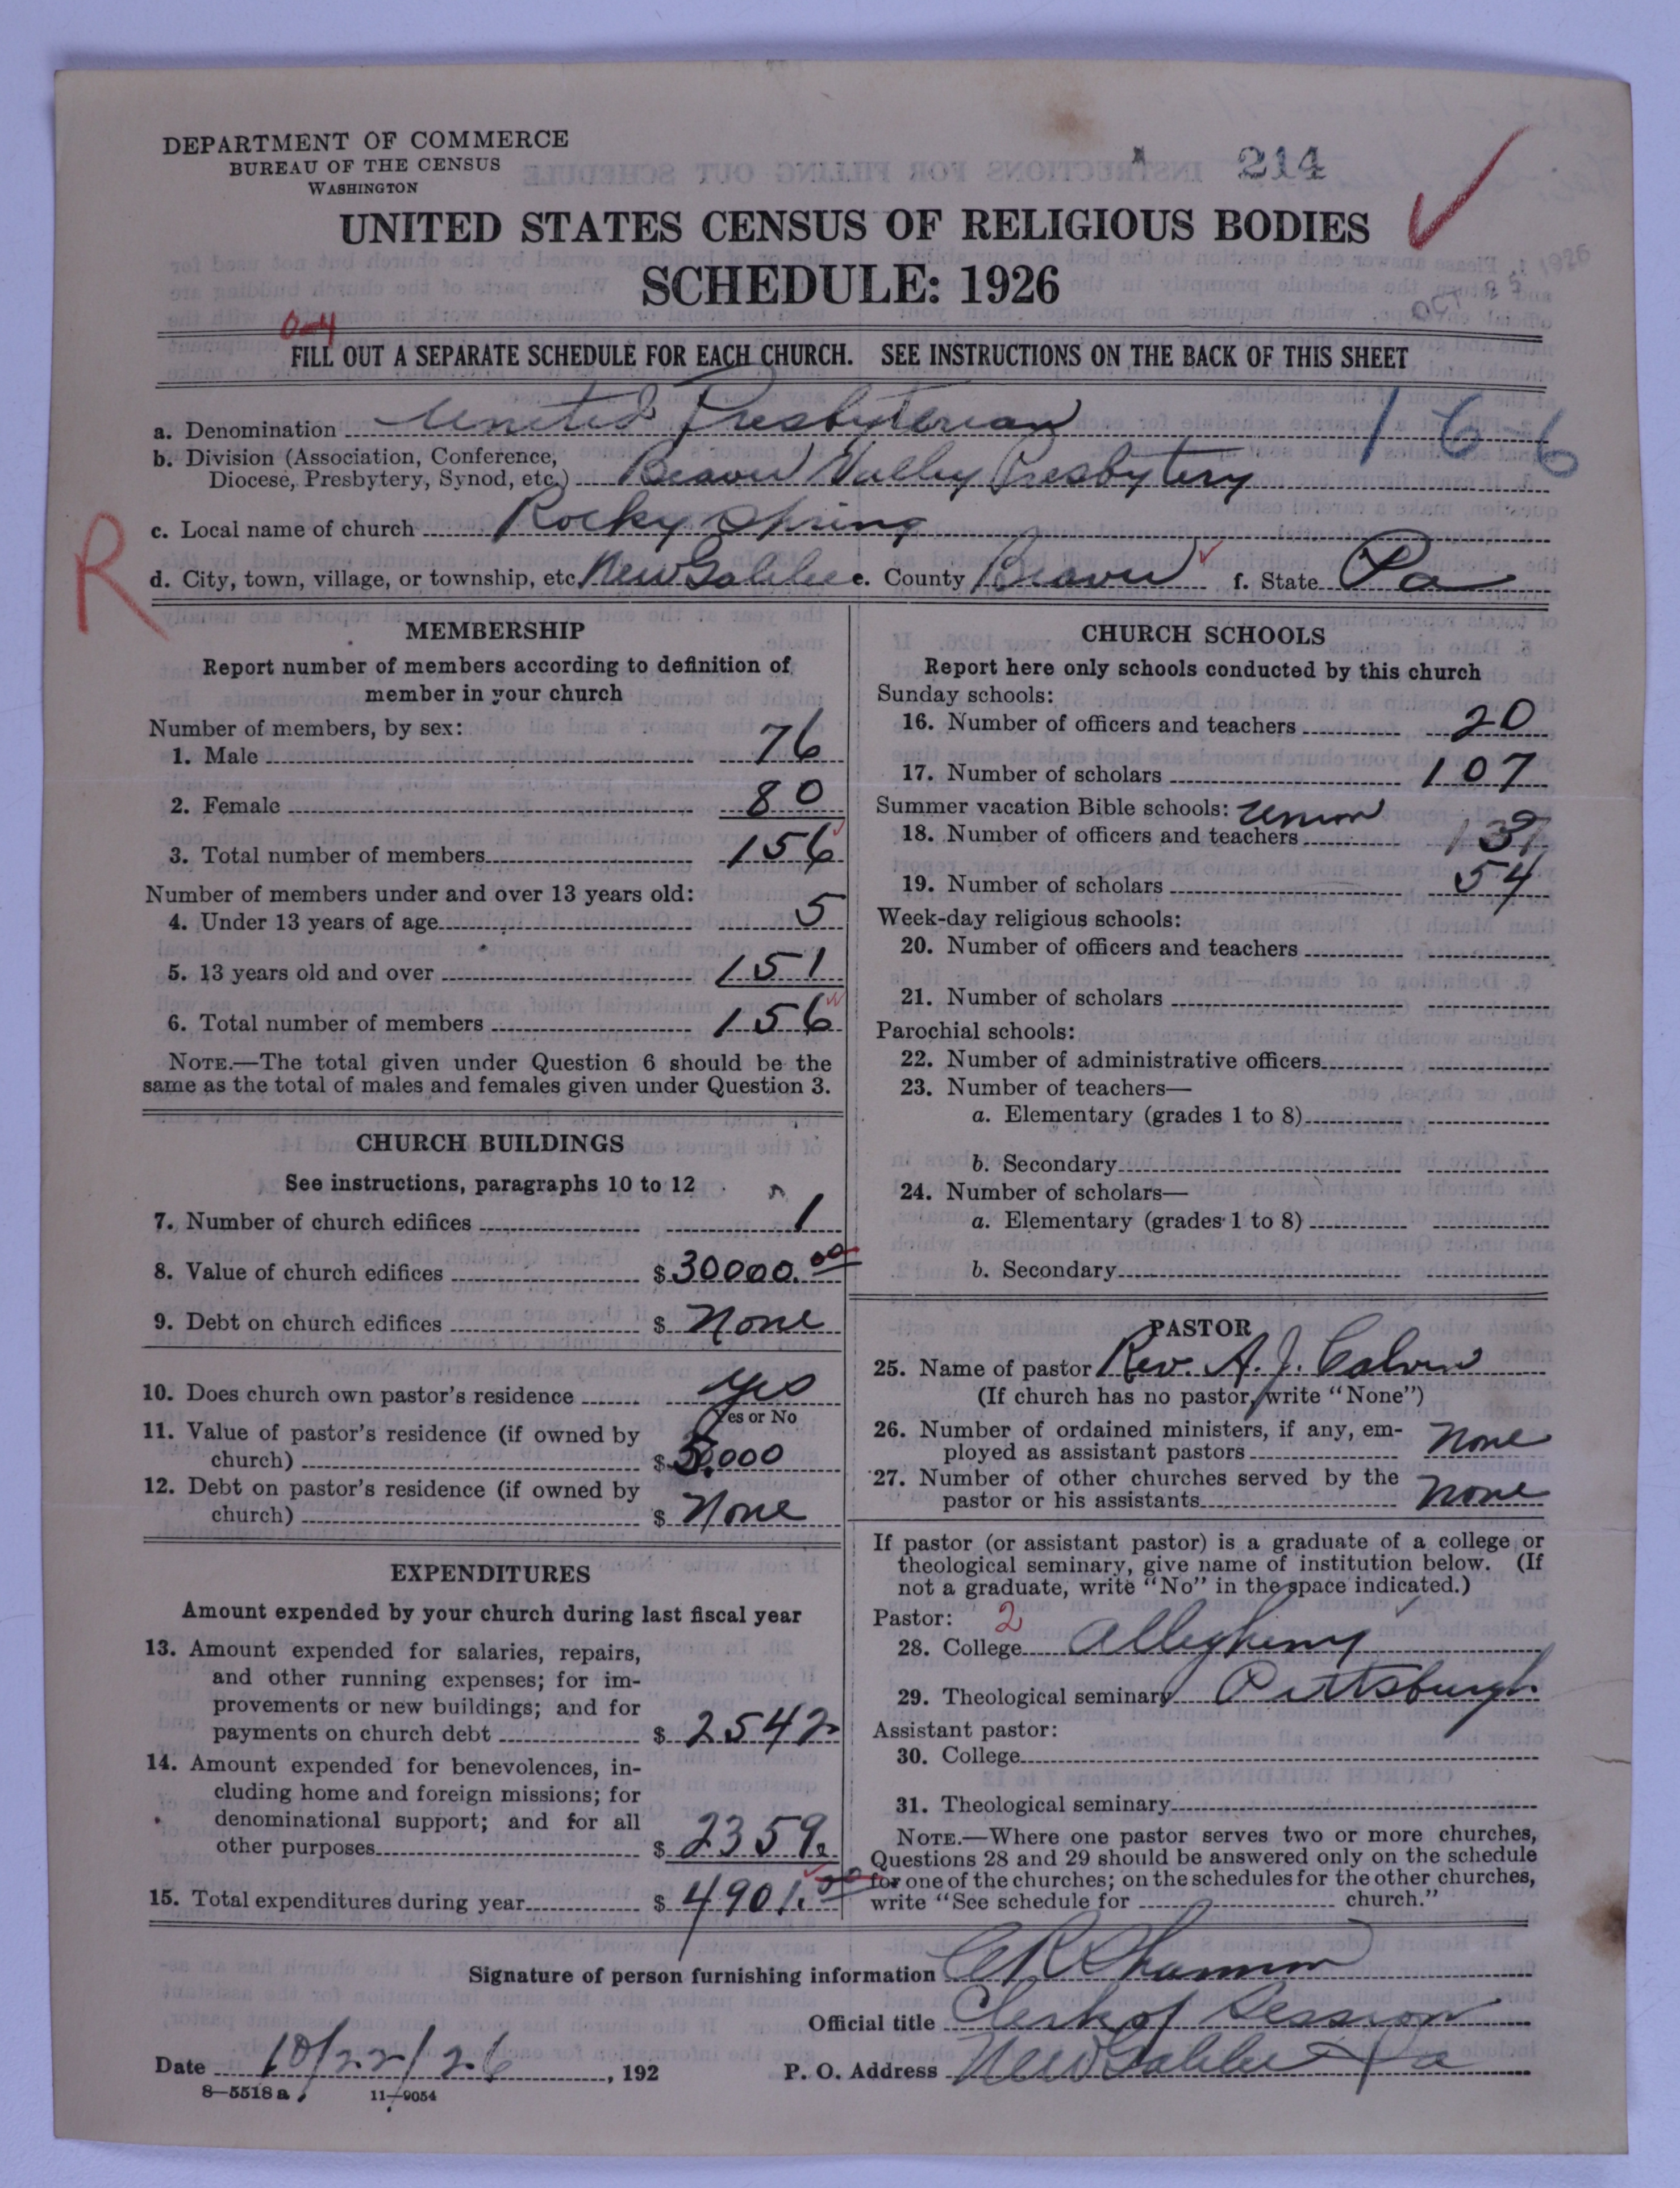 DEPARTMENT OF COMMERCE
BUREAU OF THE CENSUS
WASHINGTON
214
UNITED STATES CENSUS OF RELIGIOUS BODIES
SCHEDULE: 1926
0-4
FILL OUT A SEPARATE SCHEDULE FOR EACH CHURCH. SEE INSTRUCTIONS ON THE BACK OF THIS SHEET
a. Denomination United Presbyterian
16-6
b. Division (Association, Conference,
Diocese, Presbytery, Synod, etc.) Beaver Valley Presbytery
c. Local name of church Rocky Spring
R
d. City, town, village, or township, etc New Galilee e. County Beaver f. State Pa
MEMBERSHIP
Report number of members according to definition of
member in your church
Number of members, by sex:
1. Male 76
2. Female 80
3. Total number of members 156
Number of members under and over 13 years old:
4. Under 13 years of age 5
5. 13 years old and over 151
6. Total number of members 156
NOTE.—The total given under Question 6 should be the
same as the total of males and females given under Question 3.
CHURCH BUILDINGS
See instructions, paragraphs 10 to 12
7. Number of church edifices 1
8. Value of church edifices $ 30000.00
9. Debt on church edifices $ None
10. Does church own pastor's residence yes
Yes or No
11. Value of pastor's residence (if owned by
church) $ 5000
12. Debt on pastor's residence (if owned by
church) $ None
EXPENDITURES
Amount expended by your church during last fiscal year
13. Amount expended for salaries, repairs,
and other running expenses; for im-
provements or new buildings; and for
payments on church debt $ 2542
14. Amount expended for benevolences, in-
cluding home and foreign missions; for
denominational support; and for all
other purposes $ 2359.
15. Total expenditures during year $ 4901.00
CHURCH SCHOOLS
Report here only schools conducted by this church
Sunday schools:
16. Number of officers and teachers 20
17. Number of scholars 107
Summer vacation Bible schools: Union
18. Number of officers and teachers
19. Number of scholars 54
Week-day religious schools:
20. Number of officers and teachers
21. Number of scholars
Parochial schools:
22. Number of administrative officers
23. Number of teachers—
a. Elementary (grades 1 to 8)
b. Secondary
24. Number of scholars—
a. Elementary (grades 1 to 8)
b. Secondary
PASTOR
25. Name of pastor Rev. A. J. Calvin
(If church has no pastor, write "None")
26. Number of ordained ministers, if any, em-
ployed as assistant pastors None
27. Number of other churches served by the
pastor or his assistants None
If pastor (or assistant pastor) is a graduate of a college or
theological seminary, give name of institution below. (If
not a graduate, write "No" in the space indicated.)
Pastor: 2
28. College Allegheny
29. Theological seminary Pittsburgh
Assistant pastor:
30. College
31. Theological seminary
NOTE.—Where one pastor serves two or more churches,
Questions 28 and 29 should be answered only on the schedule
for one of the churches; on the schedules for the other churches,
write "See schedule for church."
Signature of person furnishing information C R Shannon
Official title Clerk of Session
Date 10/22/26, 192 P. O. Address New Galilee Pa
8—5518 a 11—9054